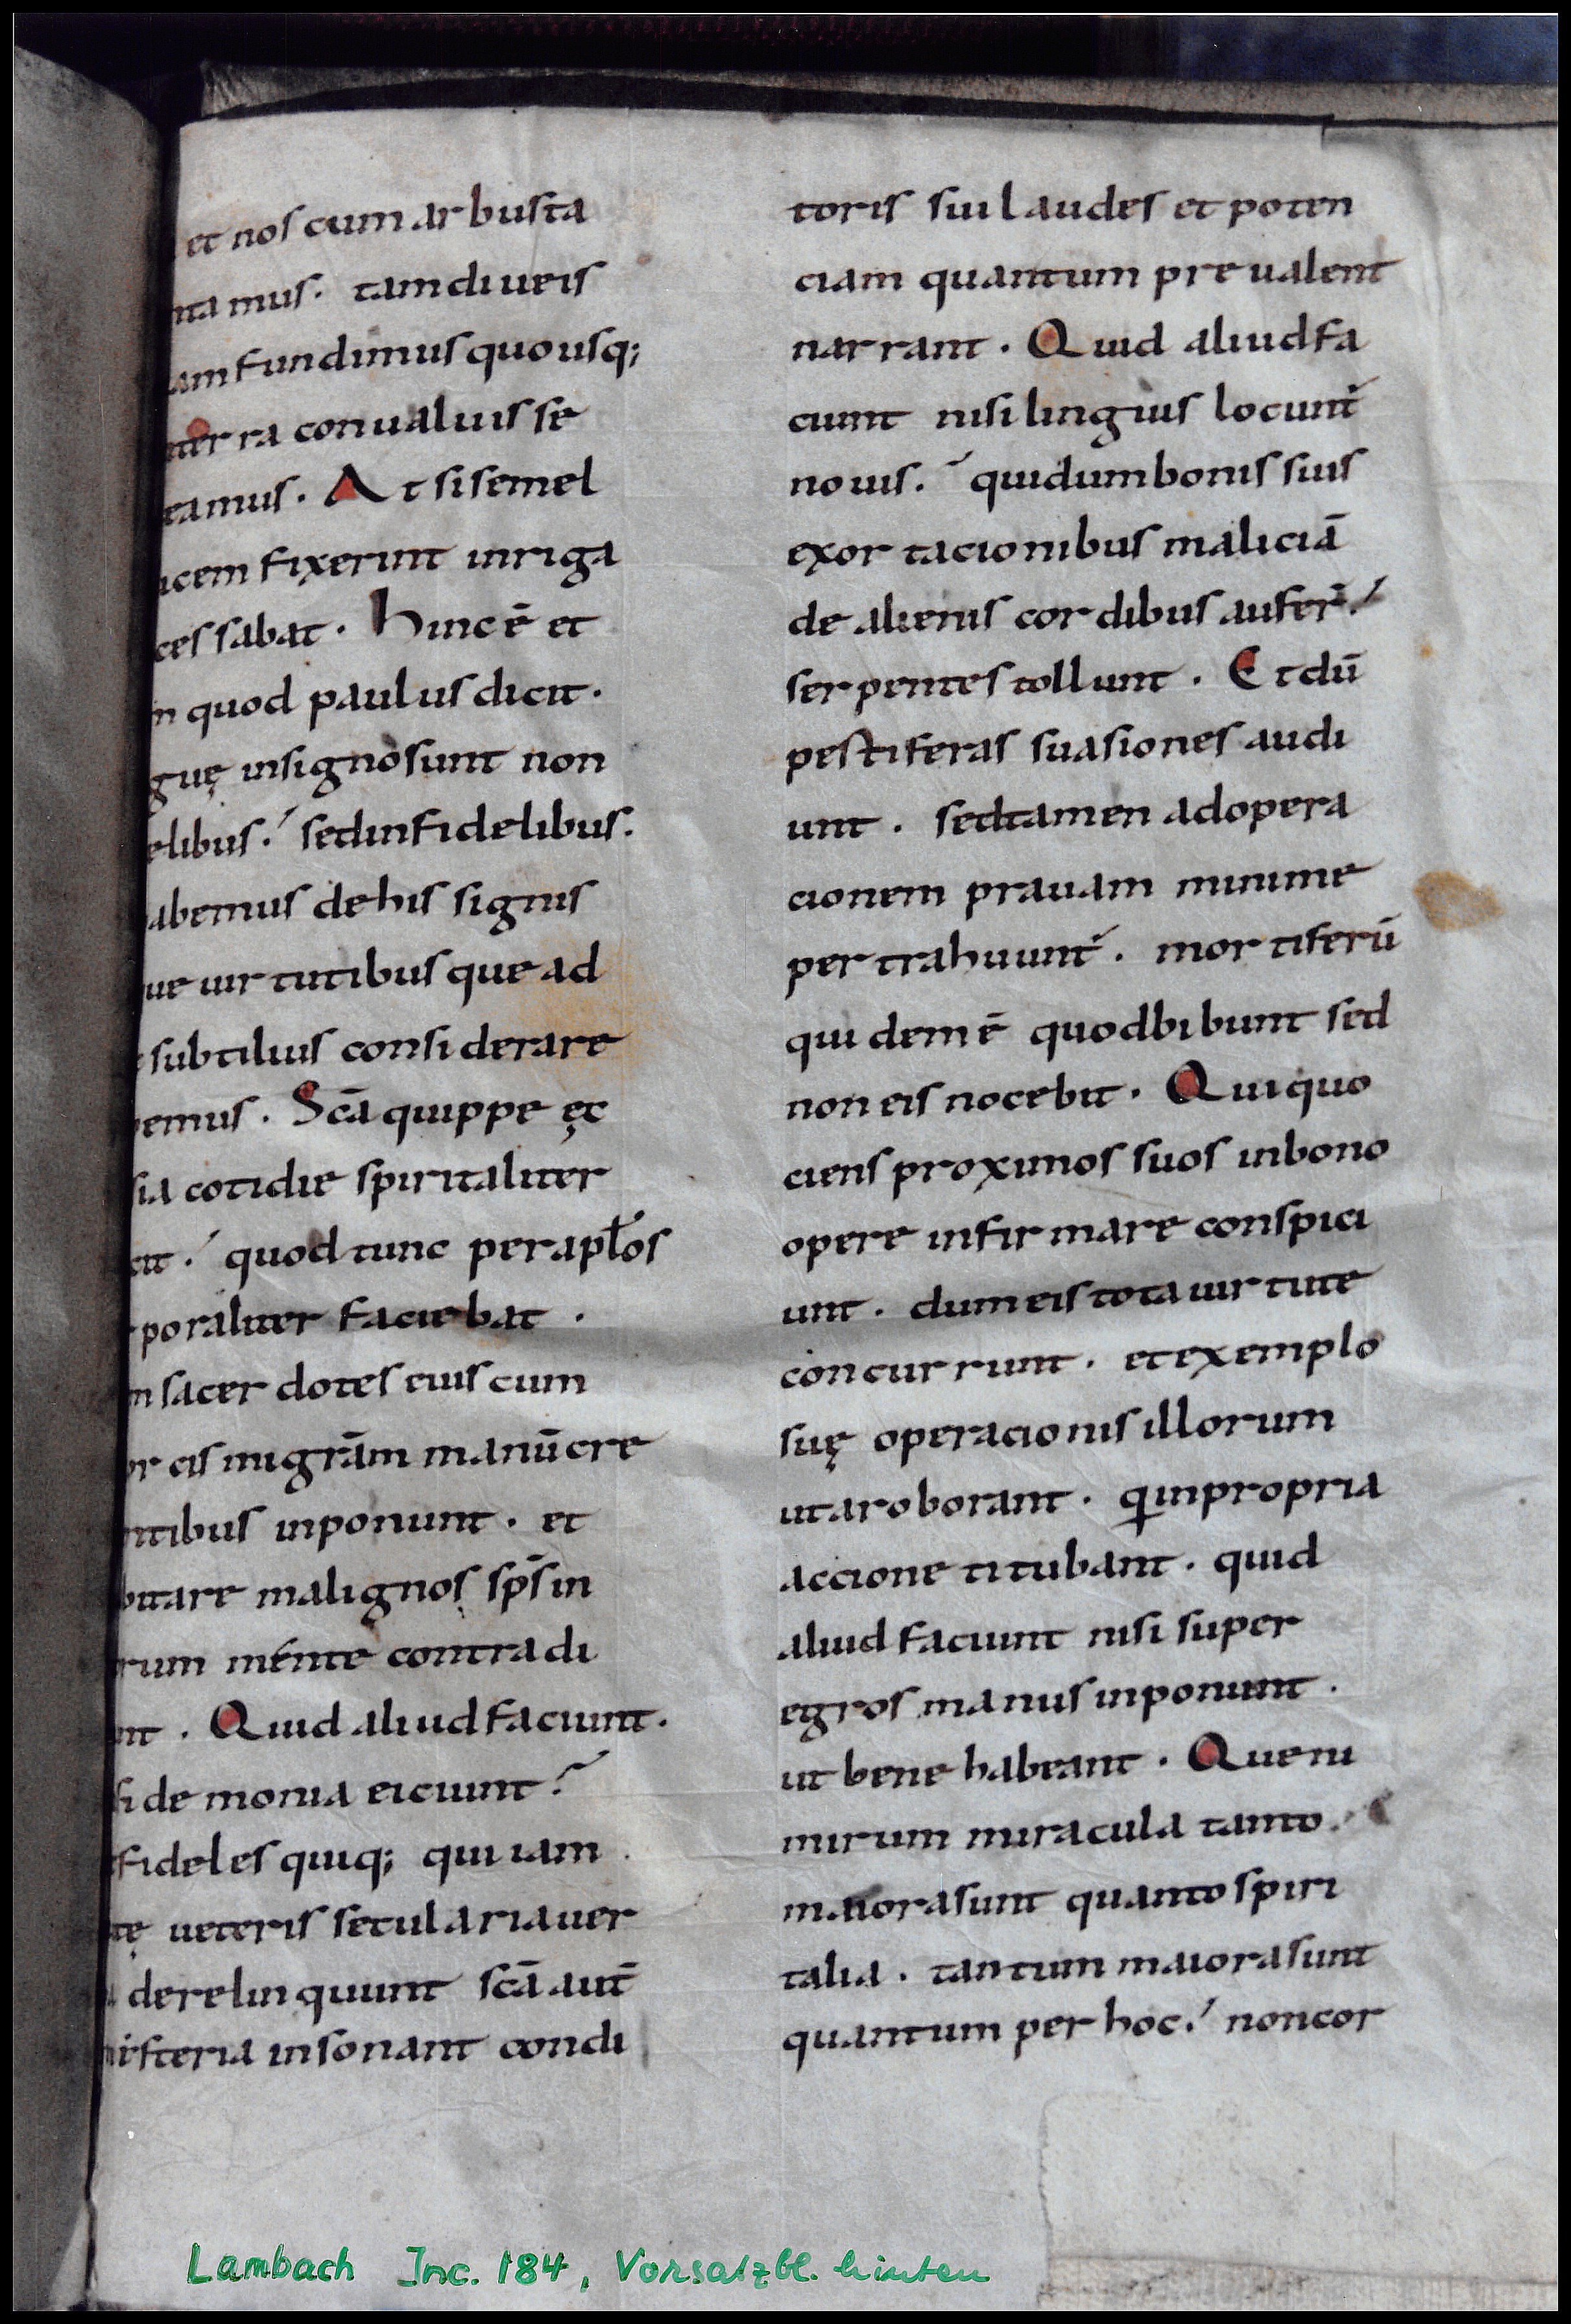 et nos cum arbusta
ntamus. tamdiu eis
am fundimus quousq;
terra conualuisse
tamus. At si semel
icem fixerint inriga
cessabat. Hinc ē et
m quod paulus dicit.
guę in signo sunt non
elibus. sed infidelibus.
abemus de his signis
ue uirtutibusque ad
subtilius considerare
emus. Scā quippe ęc
sia cotidie spiritaliter
cit. quod tunc per aplos
rporaliter faciebat.
m sacerdotes eius cum
orcismi grām manū cre
ntibus inponunt. et
bitare malignos sps̄ in
rum mente contradi
nt. Quid aliud faciunt.
si demonia eiciunt?
fideles quiq; qui iam
tę ueteris secularia uer
a derelinquunt scā aut̄
misteria insonant condi
toris sui laudes et poten
ciam quantum preualent
narrant. Quid aliud fa
ciunt nisi linguis locunt̄
nouis. qui dum bonis suis
exortacionibus maliciā
de alienis cordibus aufer̄.
serpentes tollunt. Et dū
pestiferas suasiones audi
unt. sed tamen ad opera
cionem prauam minime
pertrahuunt̄. mortiferū
quidem ē quod bibunt sed
non eis nocebit. Qui quo
ciens proximos suos in bono
opere infirmare conspici
unt. dum eis tota uirtute
concurrunt. et exemplo
suę operacionis illorum
uita roborant. q̇ in propria
accione titubant. quid
aliud faciunt nisi super
egros manus inponunt.
ut bene habeant. Que ni
mirum miracula tanto.
maiora sunt quanto spiri
talia. tantum maiora sunt
quantum per hoc. non cor
Lambach Inc. 184, Vorsatzbl. hinten